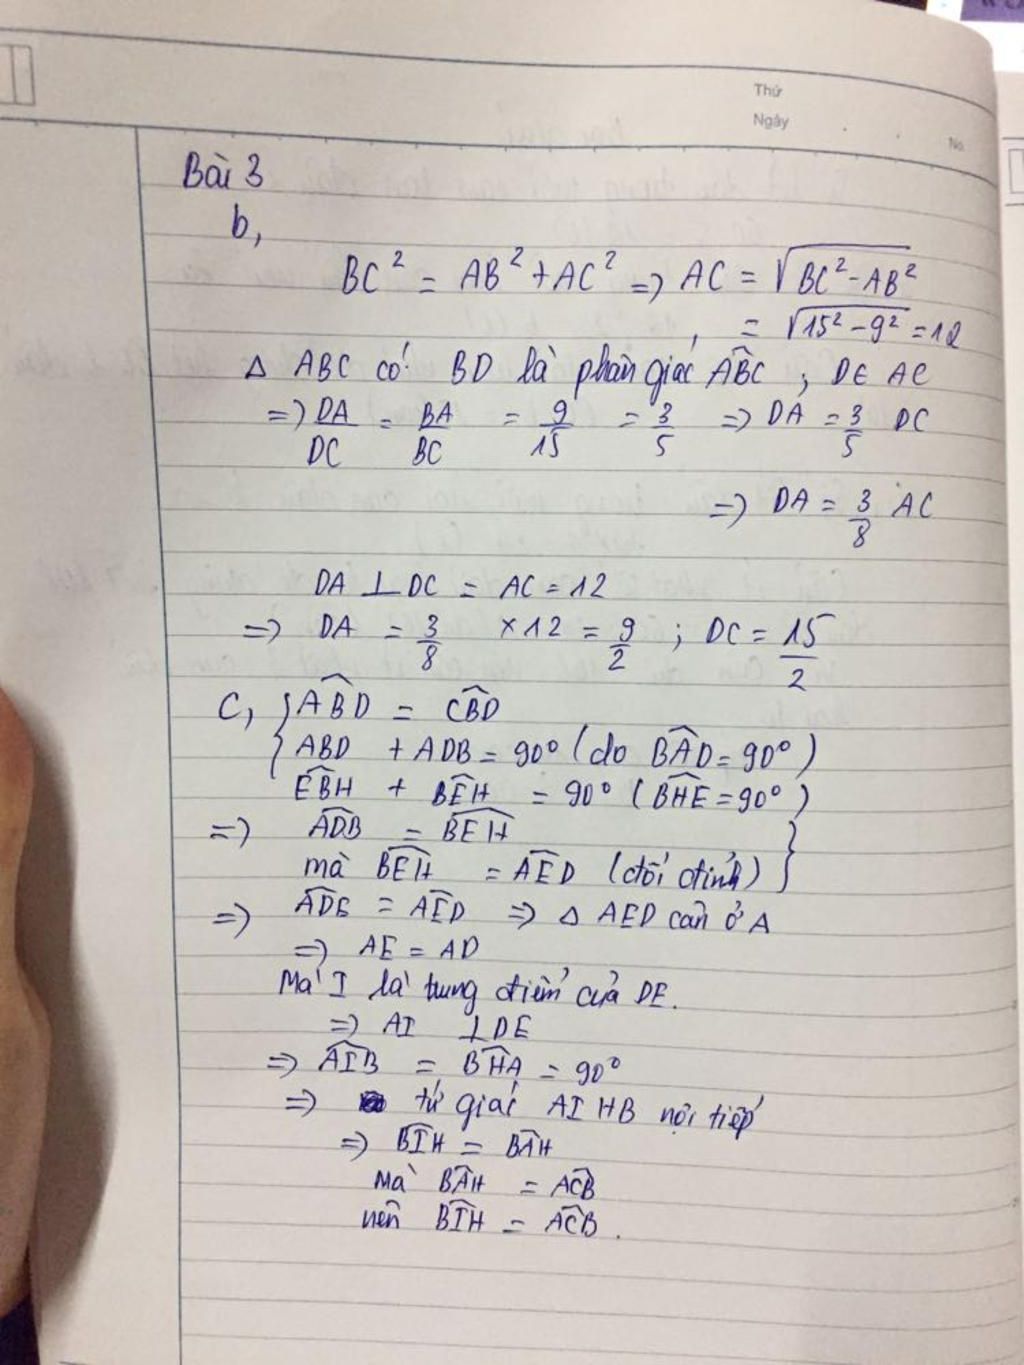 Thứ
Ngày
No.
Bài 3
b,
BC² = AB² + AC² => AC = √BC² - AB²
= √15² - 9² = 12
Δ ABC có BD là phân giác ABC ; D∈ AC
=> DA/DC = BA/BC = 9/15 = 3/5 => DA = 3/5 DC
=> DA = 3/8 AC
DA ⊥ DC = AC = 12
=> DA = 3/8 ×12 = 9/2 ; DC = 15/2
C, { ABD = CBD
ABD + ADB = 90° (do BAD = 90°)
EBH + BEH = 90° (BHE = 90°)
=> ADB = BEH
mà BEH = AED (đối đỉnh) }
=> ADE = AED => Δ AED cân ở A
=> AE = AD
Mà I là trung điểm của DE.
=> AI ⊥ DE
=> AIB = BHA = 90°
=> tứ giác AIHB nội tiếp
=> BIH = BAH
Mà BAH = ACB
nên BIH = ACB.